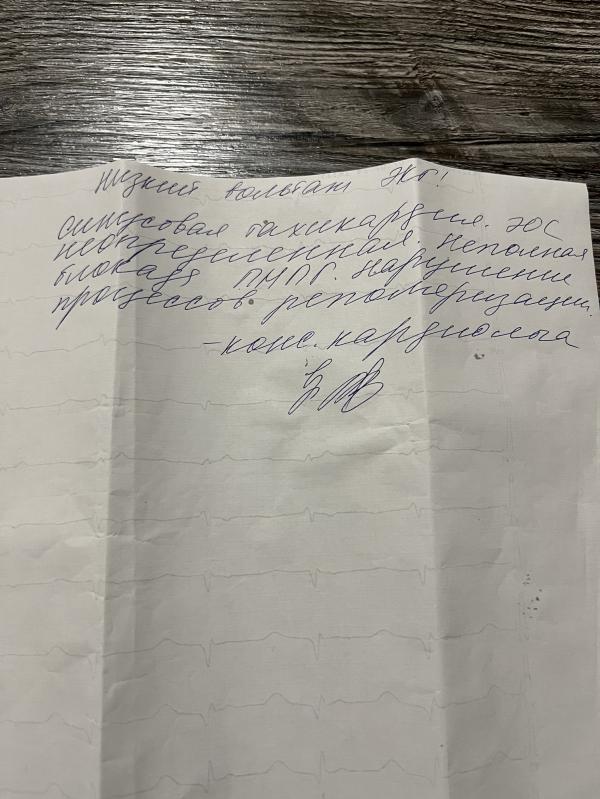 низкий вольтаж ЭКГ!
синусовая тахикардия. ЭОС
неопределенная. Неполная
блокада ПНПГ. Нарушение
процессов реполяризации.
- конс. кардиолога